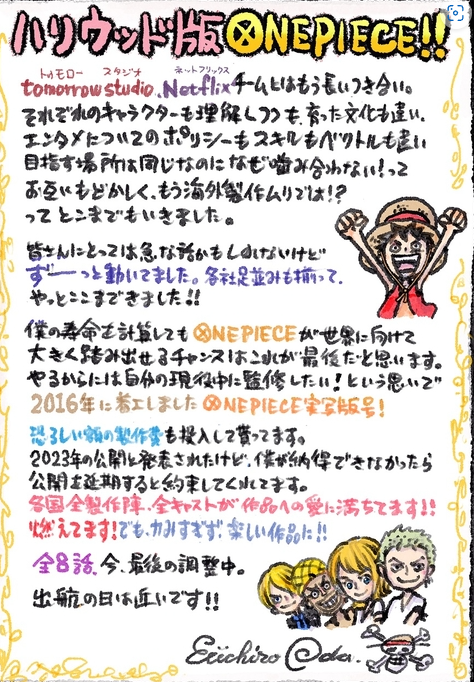 ハリウッド版 ONEPIECE!!
トゥモロー スタジオ ネットフリックス
tomorrow studio、Netflixチームとはもう長いつき合い。
それぞれのキャラクターも理解しつつも、育った文化も違い、
エンタメについてのポリシーもスキルもベクトルも違い
目指す場所は同じなのになぜ噛み合わない!って
お互いもどかしく、もう海外製作ムリでは!?
ってとこまでもいきました。
皆さんにとっては急な話かもしれないけど
ず――っと動いてました。各社足並みも揃って、
やっとここまできました!!
僕の寿命を計算してもONEPIECEが世界に向けて
大きく踏み出せるチャンスはこれが最後だと思います。
やるからには自分の現役中に監修したい!という思いで
2016年に着工しましたONEPIECE実写版号!
恐ろしい額の製作費も投入して貰ってます。
2023年の公開と発表されたけど、僕が納得できなかったら
公開を延期すると約束してくれてます。
各国全製作陣、全キャストが作品への愛に満ちてます!!
燃えてます!でも、力みすぎず、楽しい作品に!!
全8話、今、最後の調整中。
出航の日は近いです!!
Eiichiro Oda.